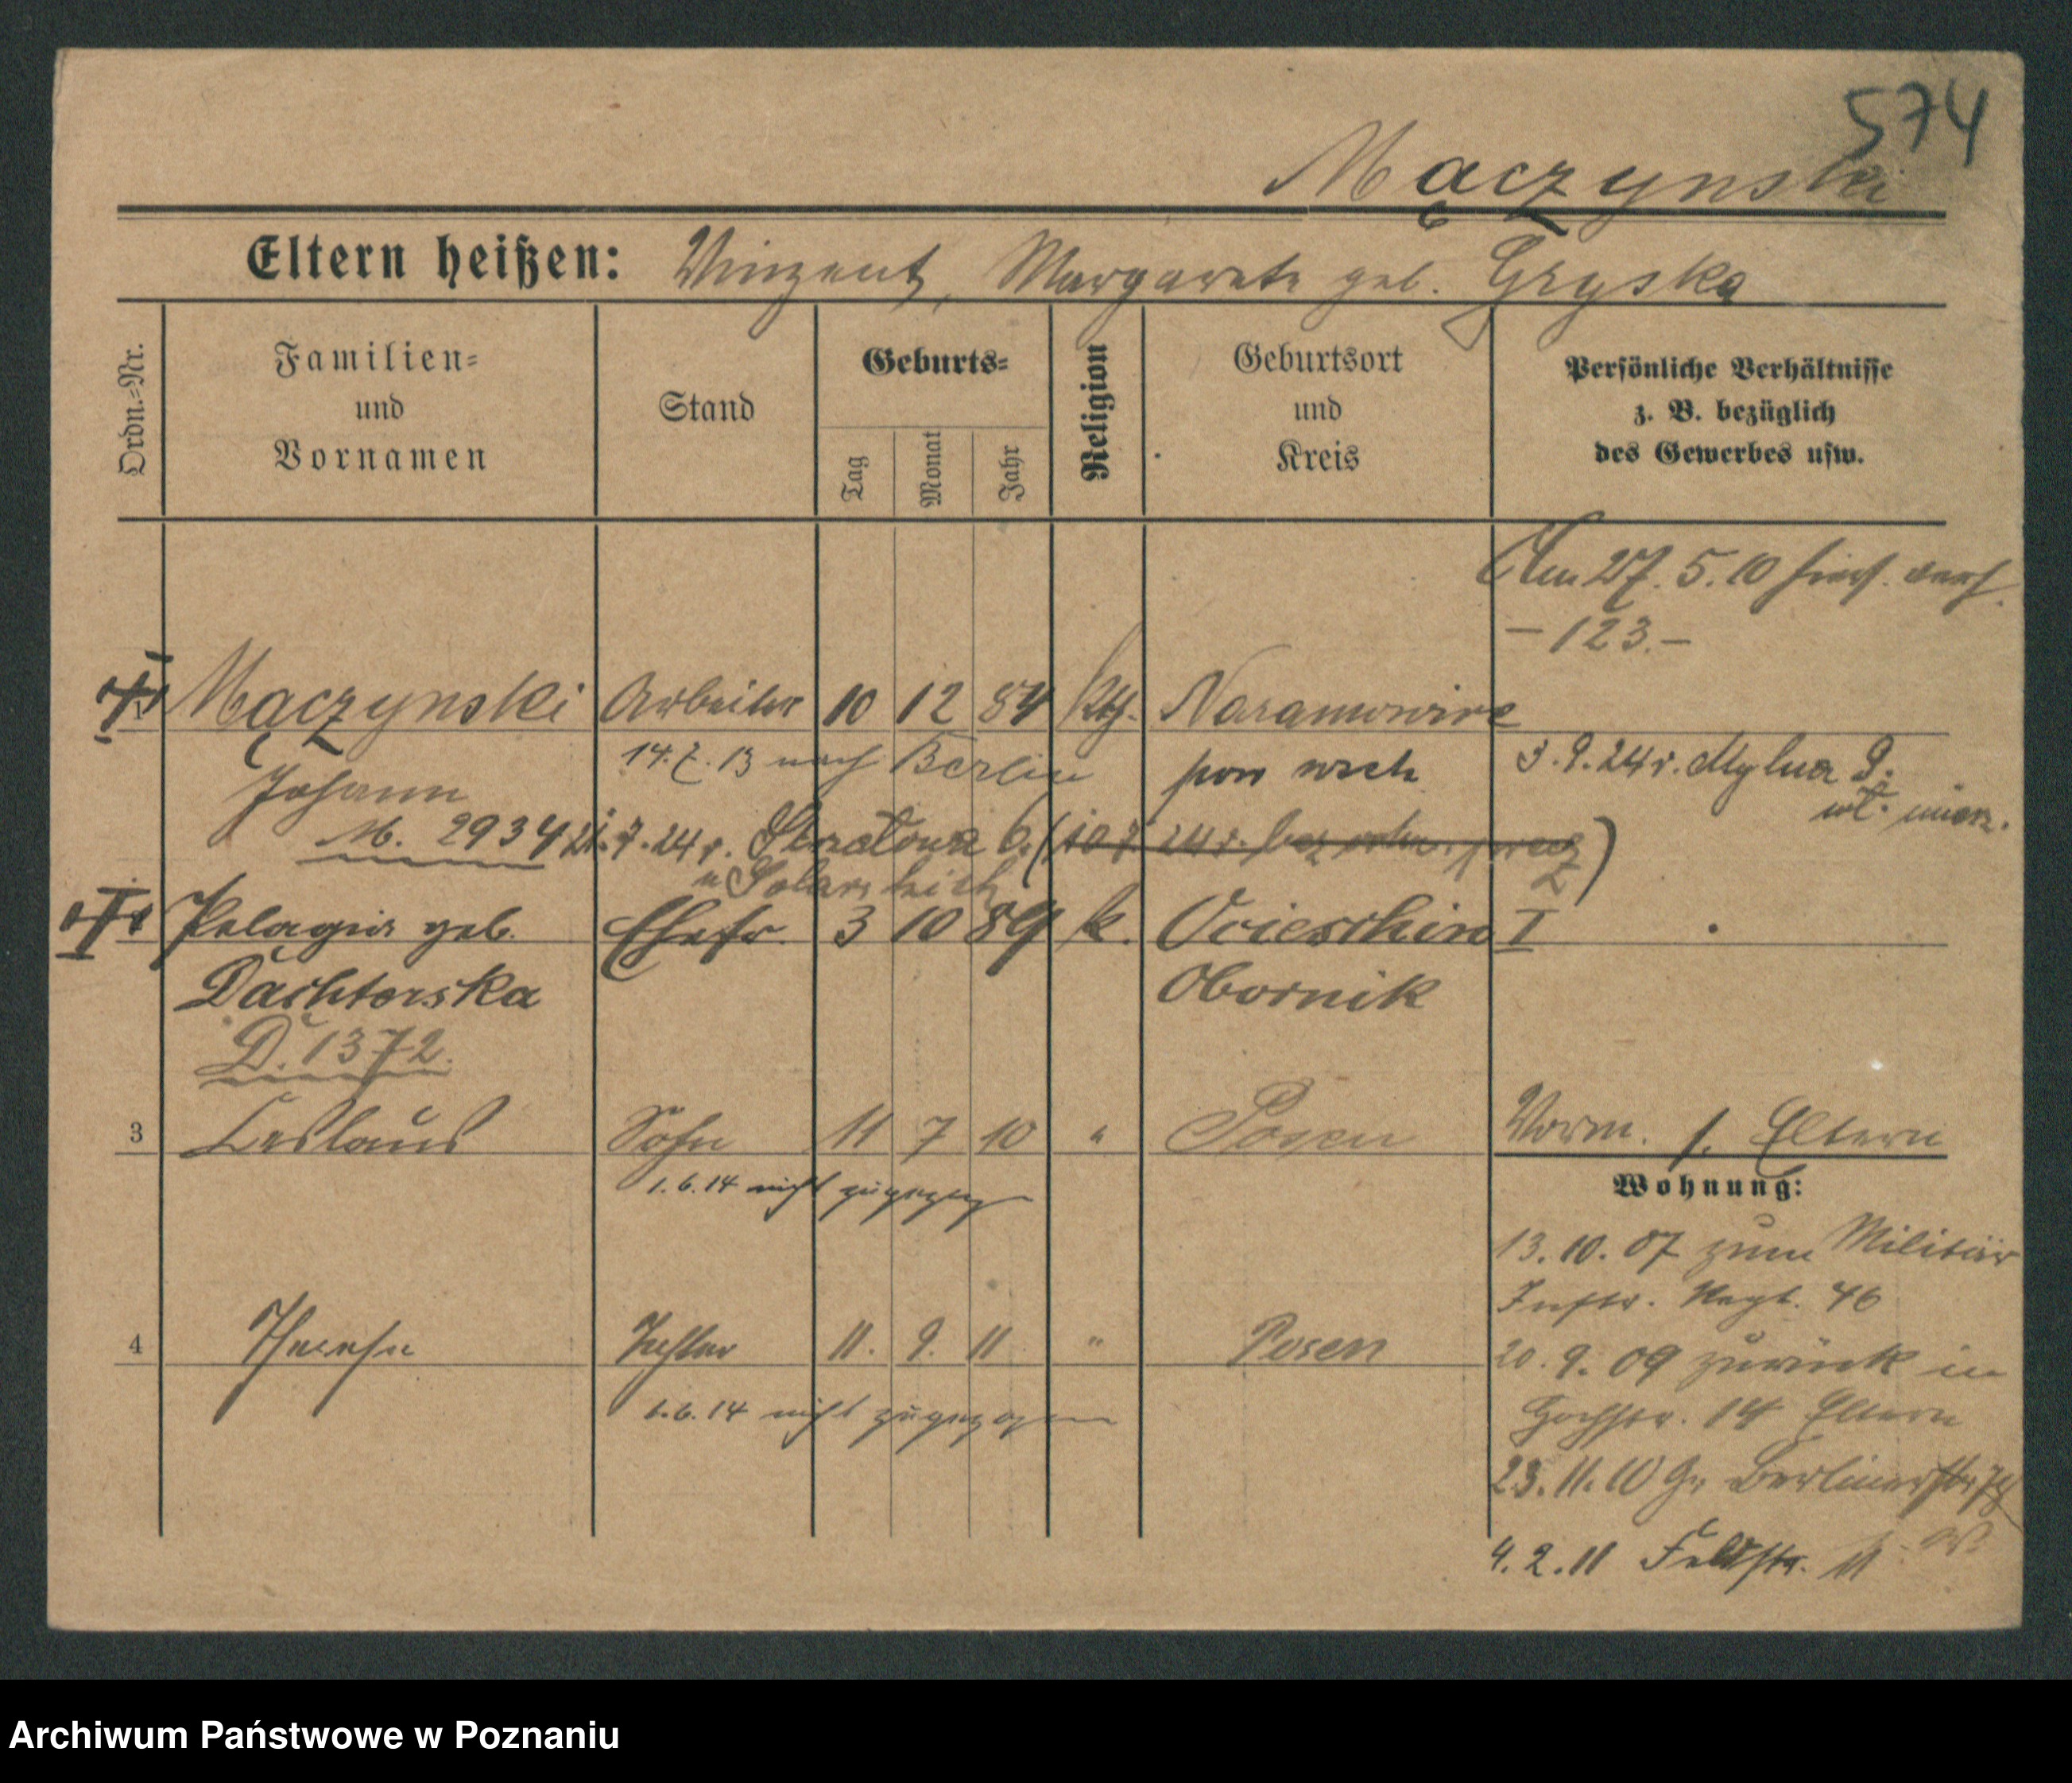 574
Mączynski
Eltern heißen: Vinzent, Margarete geb. Gryska
Ordn.-Nr.
Familien-
und
Vornamen
Stand
Geburts-
Tag
Monat
Jahr
Religion
Geburtsort
und
Kreis
Persönliche Verhältnisse
z. B. bezüglich
des Gewerbes usw.
Am 27. 5. 10 hier verh.
- 123. -
Mączynski Arbeiter 10 12 84 kth. Naramowice
Johann 14. 7. 13 nach Berlin pow wsch 3. 9. 24 r. Mylna 9.
M. 2934 21. 7. 24 r.
Pelagia geb. Ehefr. 3 10 89 k. Ocieschin I
Dachterska Obornik
D. 1372.
3 Ceslaus Sohn 11 7 10 " Posen Vorm. s. Eltern
1. 6. 14 nicht zugezogen
Wohnung:
13. 10. 07 zum Militär
Inftr. Regt. 46
4 Therese Tochter 11. 9. 11 " Posen
20. 9. 09 zurück in
1. 6. 14 nicht zugezogen
Hochstr. 14 Eltern
23. 11. 10 Gr. Berlinerstr.
4. 2. 11 Feldstr. 11
Archiwum Państwowe w Poznaniu